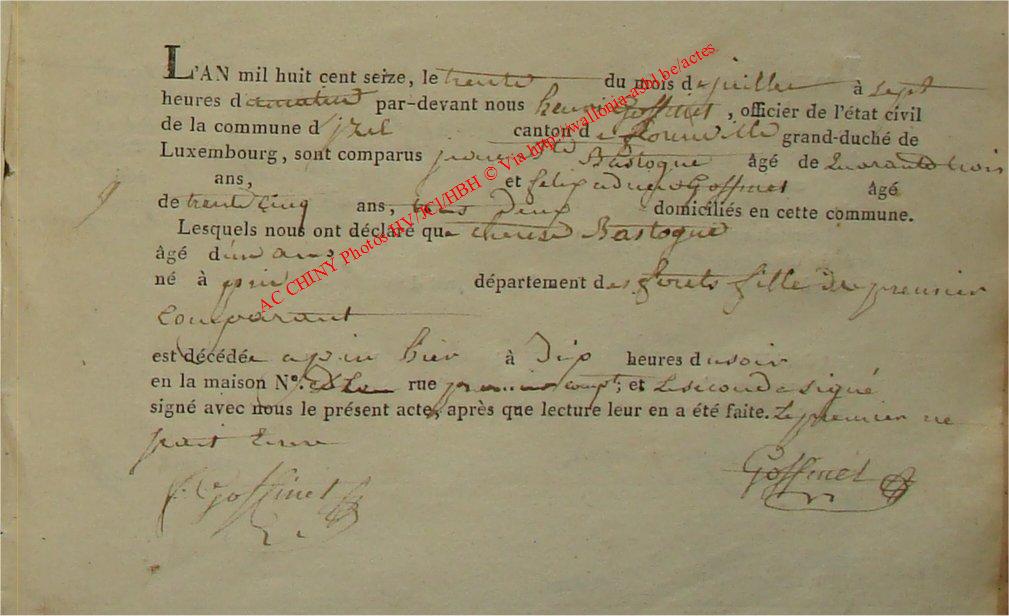 L'AN mil huit cent seize, le trente du mois de juillet à sept
heures du matin par-devant nous henri Goffinet, officier de l'état civil
de la commune d'izel canton de florenville grand-duché de
Luxembourg, sont comparus Bastogne âgé de quarante trois
ans, et Goffinet âgé
de trente cinq ans, tous deux domiciliés en cette commune.
Lesquels nous ont déclaré que therese Bastogne
âgé d'un ans
né à pin département des forets fille du premier
Comparant
est décédée a pin hier à dix heures du soir
en la maison N°. rue premier compt; et le second a signé
signé avec nous le présent acte, après que lecture leur en a été faite. Le premier ne
Goffinet
Goffinet
AC CHINY Photos HV/JCl/HBH © Via http://wallonia-asbl.be/actes.